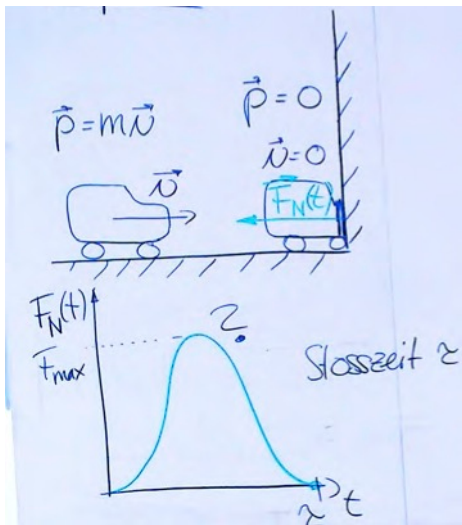 p⃗ = 0
p⃗ = mv⃗
v⃗ = 0
v⃗
F⃗_N(t)
F_N(t)
F_max
Stosszeit τ
τ
t